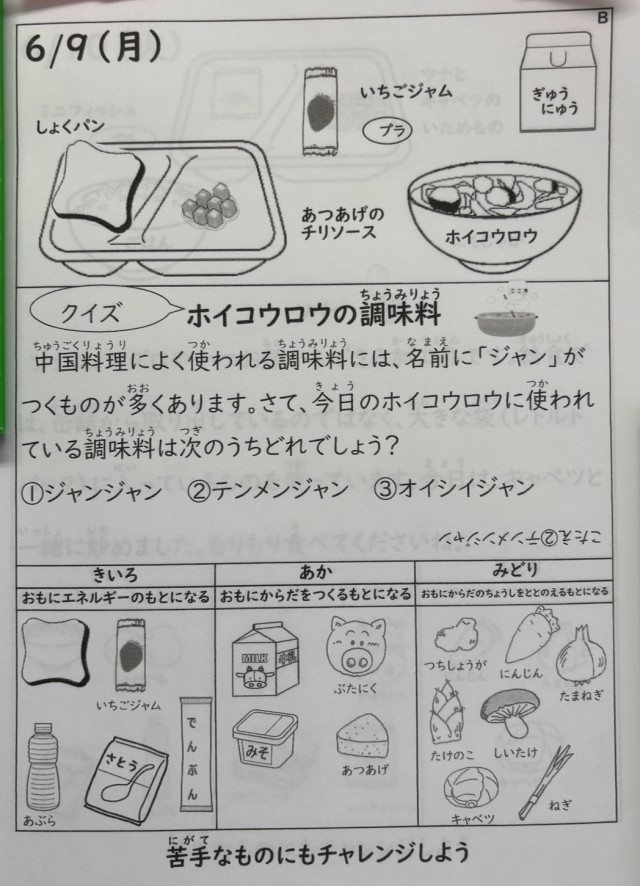 B
6/9(月)
いちごジャム
プラ
ぎゅう
にゅう
しょくパン
あつあげの
チリソース
ホイコウロウ
クイズ
ホイコウロウの調味料
ちょうみりょう
中国料理によく使われる調味料には、名前に「ジャン」が
ちゅうごくりょうり つか ちょうみりょう なまえ
つくものが多くあります。さて、今日のホイコウロウに使われ
おお きょう つか
ている調味料は次のうちどれでしょう?
ちょうみりょう つぎ
①ジャンジャン ②テンメンジャン ③オイシイジャン
こたえ②テンメンジャン
きいろ
あか
みどり
おもにエネルギーのもとになる
おもにからだをつくるもとになる
おもにからだのちょうしをととのえるもとになる
いちごジャム
あぶら
さとう
でんぷん
MILK
牛乳
ぶたにく
みそ
あつあげ
つちしょうが
にんじん
たまねぎ
たけのこ
しいたけ
キャベツ
ねぎ
苦手なものにもチャレンジしよう
にがて